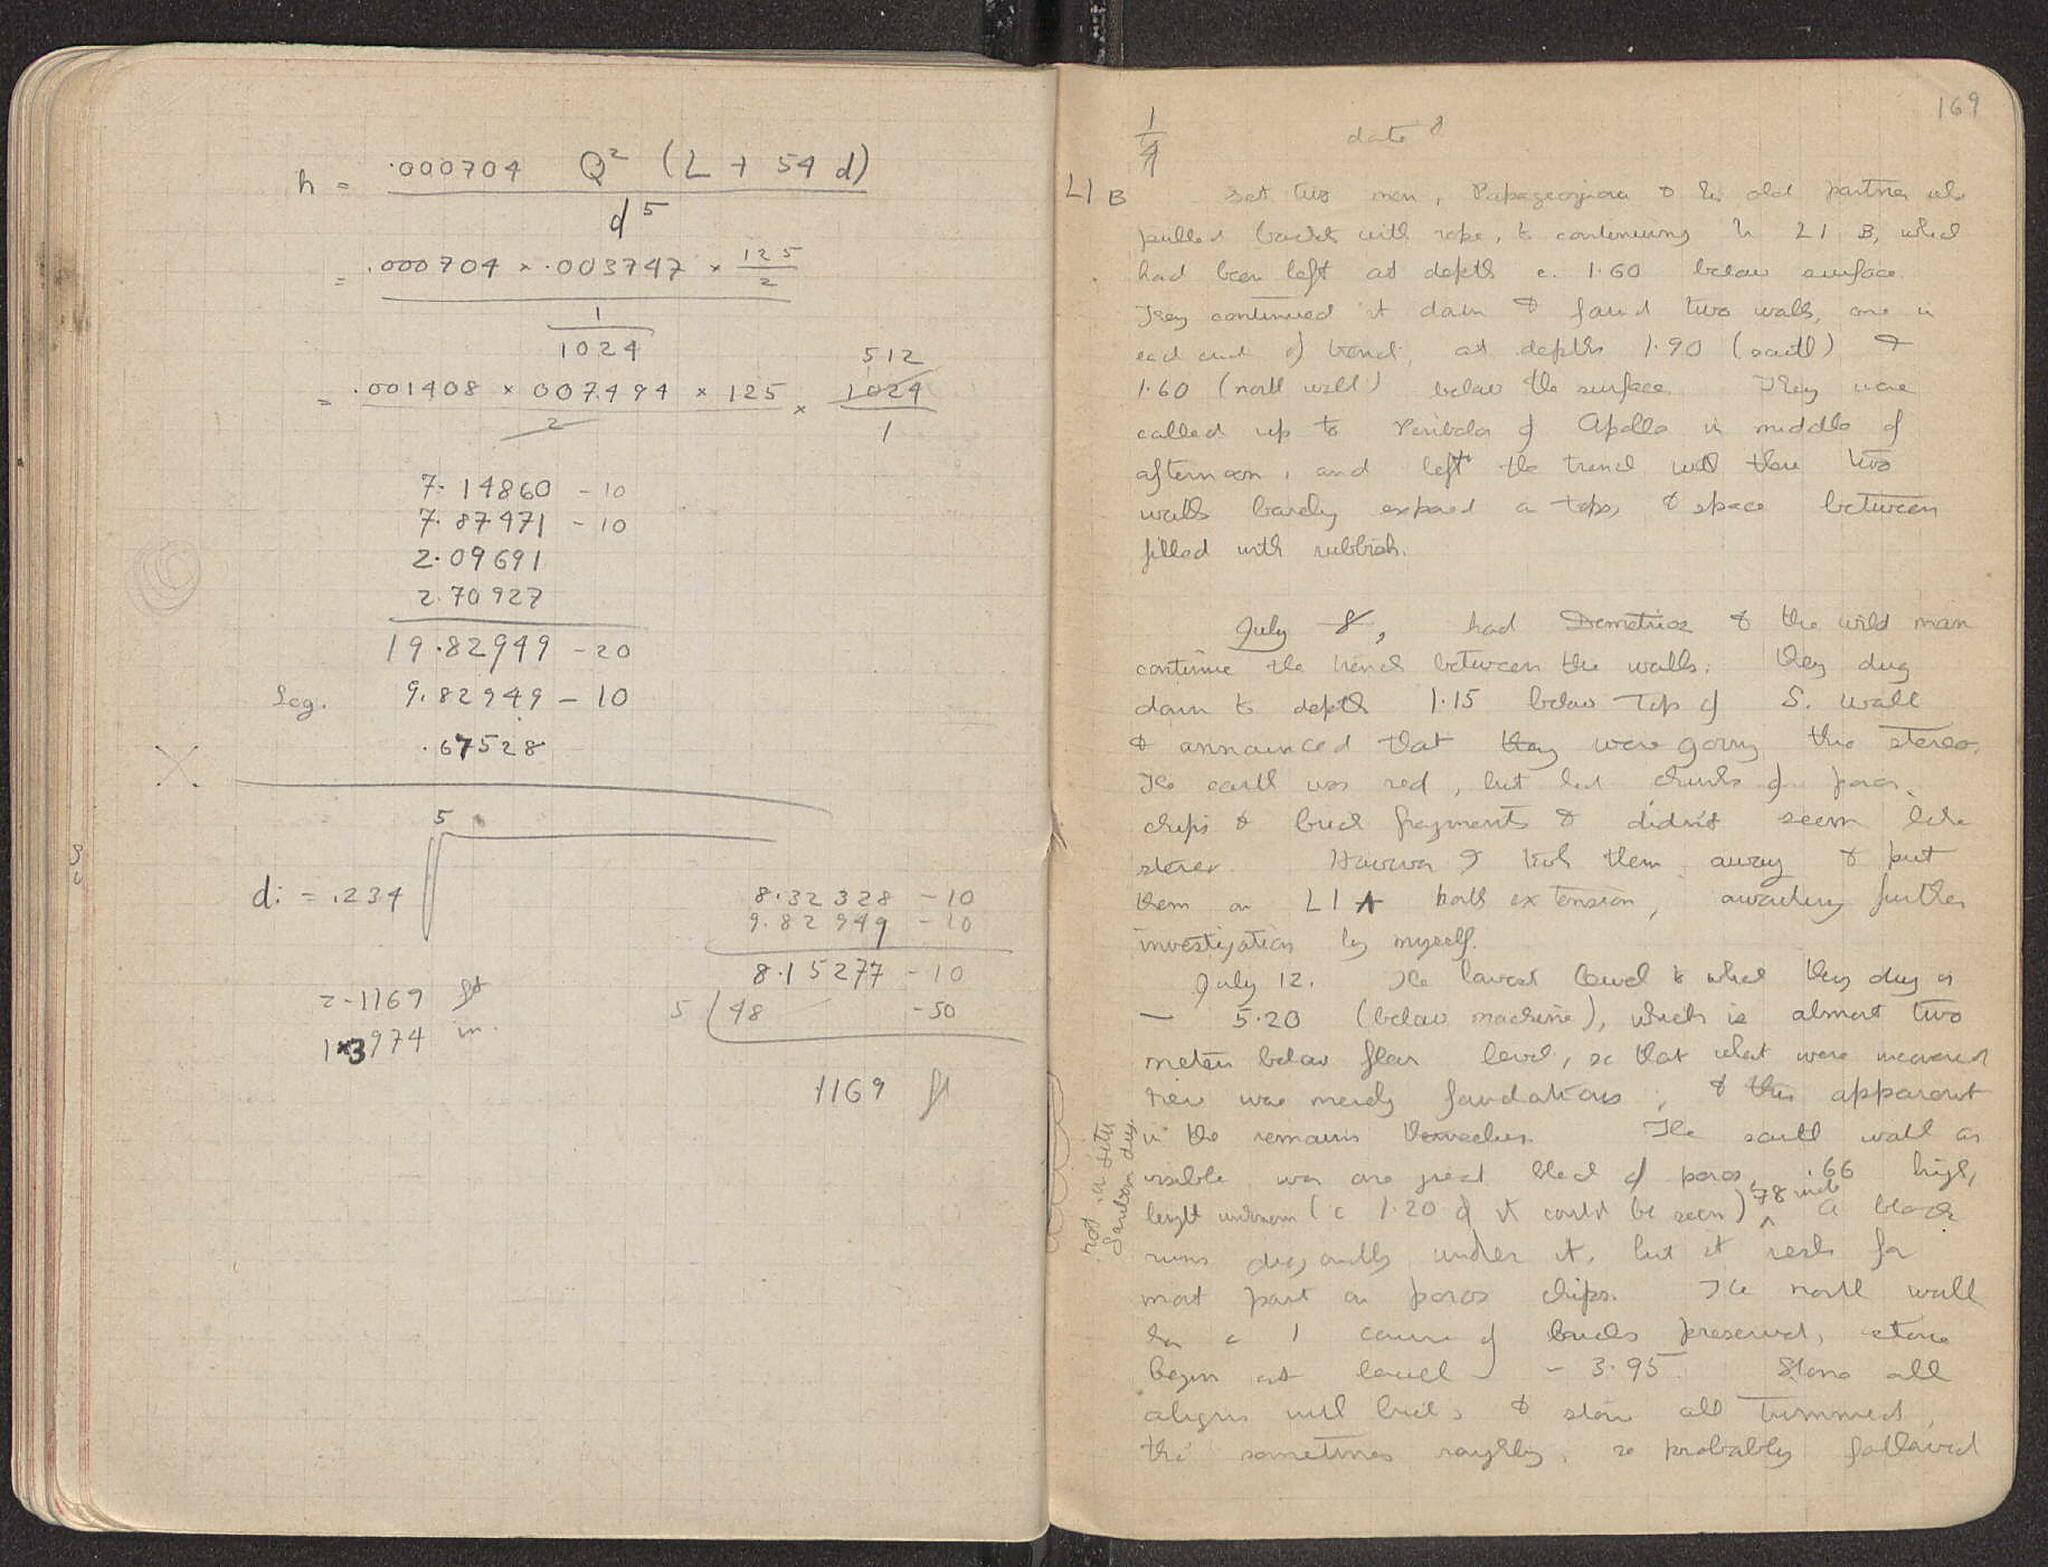 h = .000704 Q² (L + 54 d)
d⁵
= .000704 × .003747 × 125
2
1
1024
512
= .001408 × 007494 × 125 × 1024
2
1
7.14860 - 10
7.87471 - 10
2.09691
2.70927
19.82949 - 20
Log. 9.82949 - 10
.67528
5
d: = .234
8.32328 - 10
9.82949 - 10
8.15277 - 10
5 48 - 50
= .1169 ft
1.3974 in.
1169 ft
169
date 8
L1 B Set two men, & his old partner who
pulled baskets with rope, to continuing in L1 B, which
had been left at depth c. 1.60 below surface.
They continued it down & found two walls, one in
each end of trench, at depths 1.90 (south) &
1.60 (north wall) below the surface. They were
called up to Peribolos of Apollo in middle of
afternoon, and left the trench with these two
walls barely exposed on tops, & space between
filled with rubbish.
July 8, had Demetrios & the wild man
continue the trench between the walls. They dug
down to depth 1.15 below top of S. wall
& announced that they were going thro stereo.
The earth was red, but had chunks of poros
chips & brick fragments & didn't seem like
stereo. However I took them away & put
them on L1 A north extension, awaiting further
investigation by myself.
July 12. The lowest level to which they dug is
- 5.20 (below machine), which is almost two
meters below floor level, so that what were uncovered
here was merely foundations; & this apparent
in the remains themselves. The south wall as
visible was one great block of poros, .66 high,
length unknown (c 1.20 of it could be seen) .78 wide A block
runs under it, but it rests for
most part on poros chips. The north wall
has c 1 course of bricks preserved, stone
begins at level - 3.95. Stone all
aligns with bricks & stone all trimmed,
tho' sometimes roughly, so probably followed
not in situ
Sanborn dug.